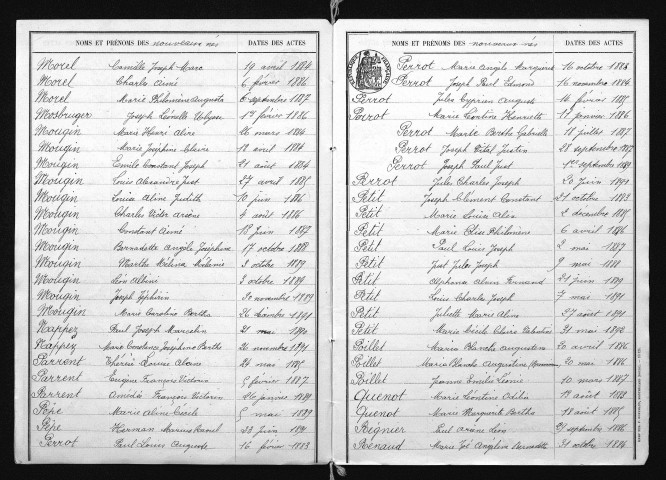 NOMS ET PRÉNOMS DES nouveaux nés DATES DES ACTES
Morel Camille Joseph Marc 19 avril 1884
Morel Charles Aimé 6 février 1886
Morel Marie Philomène Augusta 6 septembre 1887
Mosbruger Joseph 17 février 1886
Mougin Marie Henri 26 mars 1884
Mougin Marie Joséphine 18 avril 1884
Mougin Emile Constant Joseph 21 août 1884
Mougin Louis Alexandre Just 27 avril 1885
Mougin Louise Aline Judith 10 juin 1886
Mougin Charles Victor 4 août 1886
Mougin Constant Aimé juin 1887
Mougin Bernadette Angèle Joséphine 17 octobre 1888
Mougin Marthe Mélina octobre 1889
Mougin Léa octobre 1889
Mougin Joseph Zéphirin novembre 1889
Mougin Marie Caroline Berthe 1891
Nappey Paul Joseph Marcelin 21 mai 1890
Nappey Marie Constance Joséphine Berthe 26 novembre 1891
Parrent Louise 24 mai 1885
Parrent Eugène François Victorin 5 février 1887
Parrent Amédée François Victorin 26 janvier 1889
Pépe Marie Aline Cécile 5 mai 1889
Pépe Herman Marius Raoul 23 juin
Perrot Paul Louis Auguste 16 février 1883
NOMS ET PRÉNOMS DES nouveaux nés DATES DES ACTES
Perrot Marie Angèle Marguerite 16 octobre 1883
Perrot Joseph Paul Edmond 16 novembre 1884
Perrot Jules Cyprien Auguste 16 février 1885
Perrot Marie Léontine Henriette 11 janvier 1886
Perrot Marthe Berthe Gabrielle 18 juillet 1887
Perrot Joseph Vital Justin 28 septembre 1887
Perrot Joseph Paul Just 1er septembre 1889
Perrot Jules Charles Joseph 20 juin 1891
Petit Joseph Clément Constant 21 octobre 1883
Petit Marie Louise décembre 1885
Petit Marie Elise Philomène 6 avril 1886
Petit Paul Louis Joseph 2 mai 1887
Petit Just Jules Joseph 9 mai 1888
Petit Alphonse Fernand 21 juin 1889
Petit Louis Charles Joseph 7 mai 1891
Petit Juliette Marie Aline 27 août 1891
Petit Marie Cécile Claire 21 mai 1892
Poillet Maria Blanche Augustine 20 avril 1886
Poillet Maria Blanche Augustine 20 mai 1886
Poillet Jeanne Emilie Léonie 10 mars 1887
Quenot Marie Léontine Odilia 18 août 1883
Quenot Marie Marguerite Berthe 18 août 1885
Régnier Paul Léon 21 septembre 1886
Renaud Marie Angéline Bernadette 31 octobre 1884